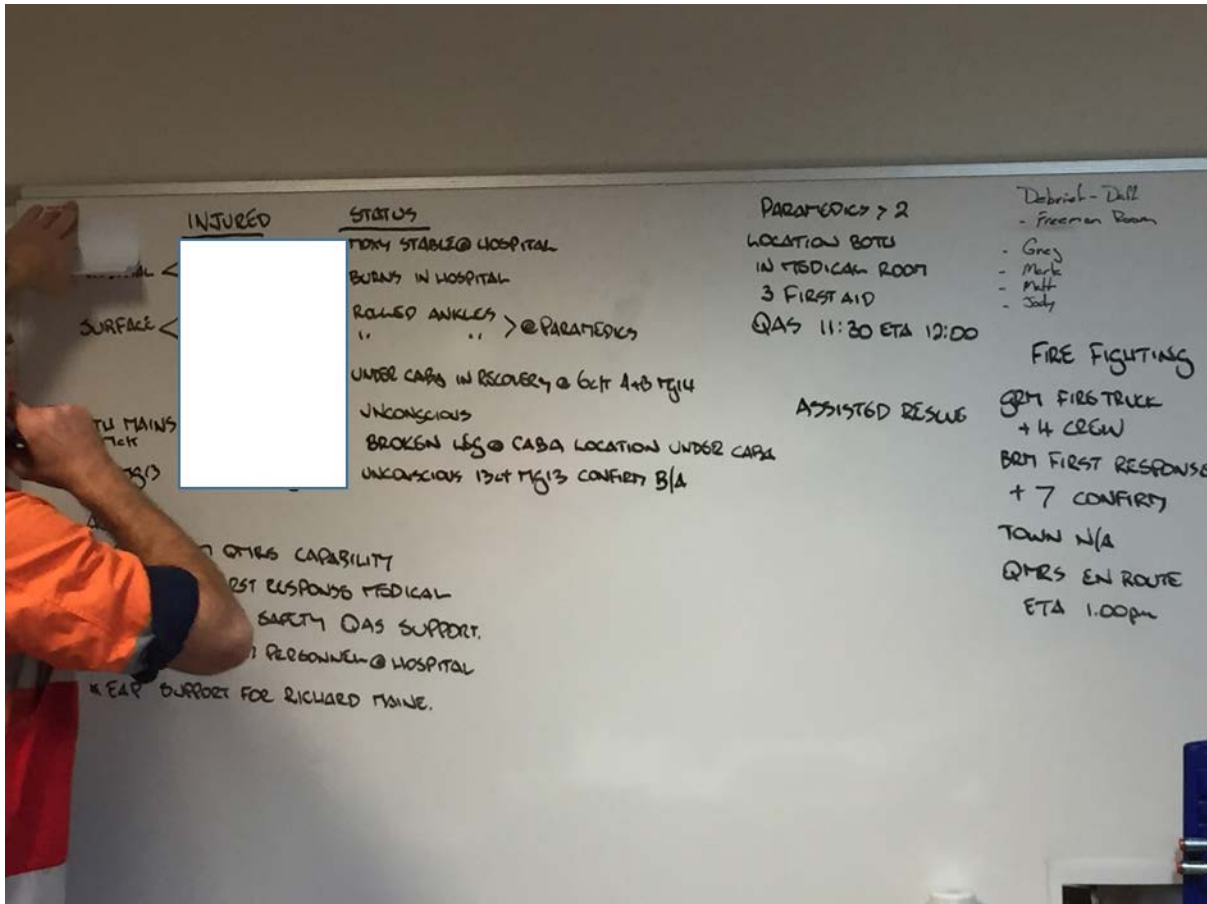 INJURED STATUS
MOXY STABLE @ HOSPITAL
BURNS IN HOSPITAL
SURFACE < ROLLED ANKLES
" " > @ PARAMEDICS
UNDER CABA IN RECOVERY @ 6c/t A+B MG14
MAINS UNCONSCIOUS
BROKEN LEG @ CABA LOCATION UNDER CABA
UNCONSCIOUS 13c/t MG13 CONFIRM B/A
QMRS CAPABILITY
RESPONSE MEDICAL
SAFETY QAS SUPPORT.
PERSONNEL @ HOSPITAL
* EAP SUPPORT FOR RICHARD MAINE.
PARAMEDICS > 2
LOCATION BOTH
IN MEDICAL ROOM
3 FIRST AID
QAS 11:30 ETA 12:00
ASSISTED RESCUE
Debrief -
- Freeman Room
- Greg
- Mark
- Matt
- Jody
FIRE FIGHTING
GRM FIRE TRUCK
+ 4 CREW
BRM FIRST RESPONSE
+ 7 CONFIRM
TOWN N/A
QMRS EN ROUTE
ETA 1.00pm